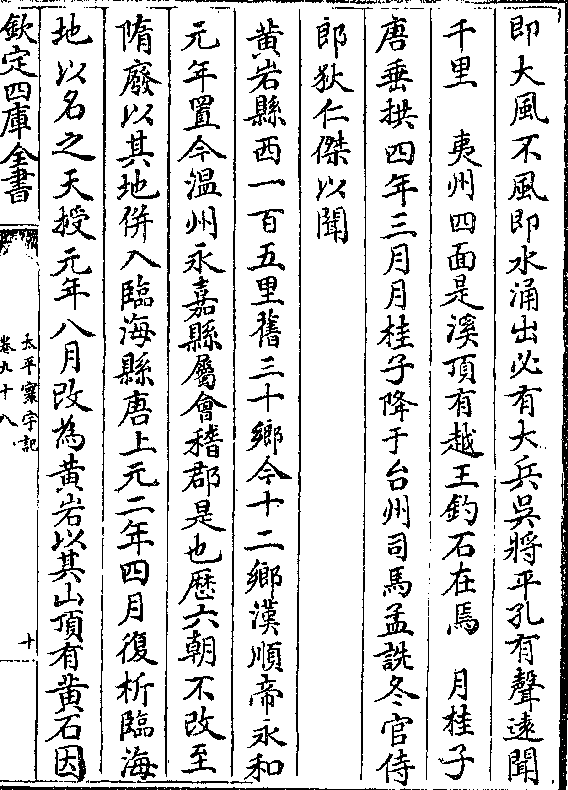 即大風不風即水涌出必有大兵吳將平孔有聲遠聞
千里　夷州四面是溪頂有越王釣石在焉　月桂子
唐垂拱四年三月月桂子降于台州司馬孟詵冬官侍
郎狄仁傑以聞
黄岩縣西一百五里舊三十鄉今十二鄉漢順帝永和
元年置今温州永嘉縣屬會稽郡是也歷六朝不改至
隋廢以其地併入臨海縣唐上元二年四月復析臨海
地以名之天授元年八月改為黄岩以其山頂有黄石因
欽定四庫全書
太平寰宇記
卷九十八
十